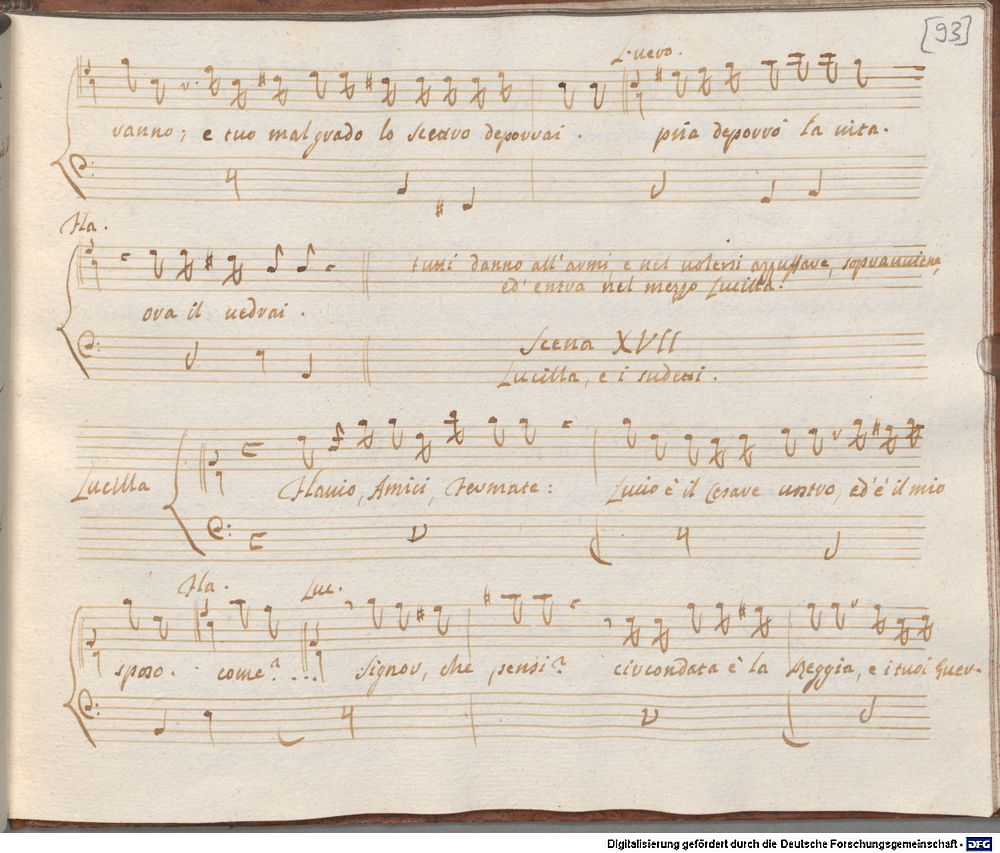 [93]
L: vero.
ranno; e tuo mal grado lo scettro deporrai. pria deporrò la vita.
Fla.
tutti danno all'armi, e nel volersi azzuffare, sopraviene,
ed' entra nel mezzo Lucilla.
ora il vedrai.
Scena XVII
Lucilla, e i sudetti.
Lucilla Flavio, Amici, fermate: Lucio è il Cesare vostro, ed' è il mio
Fla. Luc.
sposo. come?... Signor, che pensi? circondata è la Reggia, e i tuoi Guer-
Digitalisierung gefördert durch die Deutsche Forschungsgemeinschaft - DFG